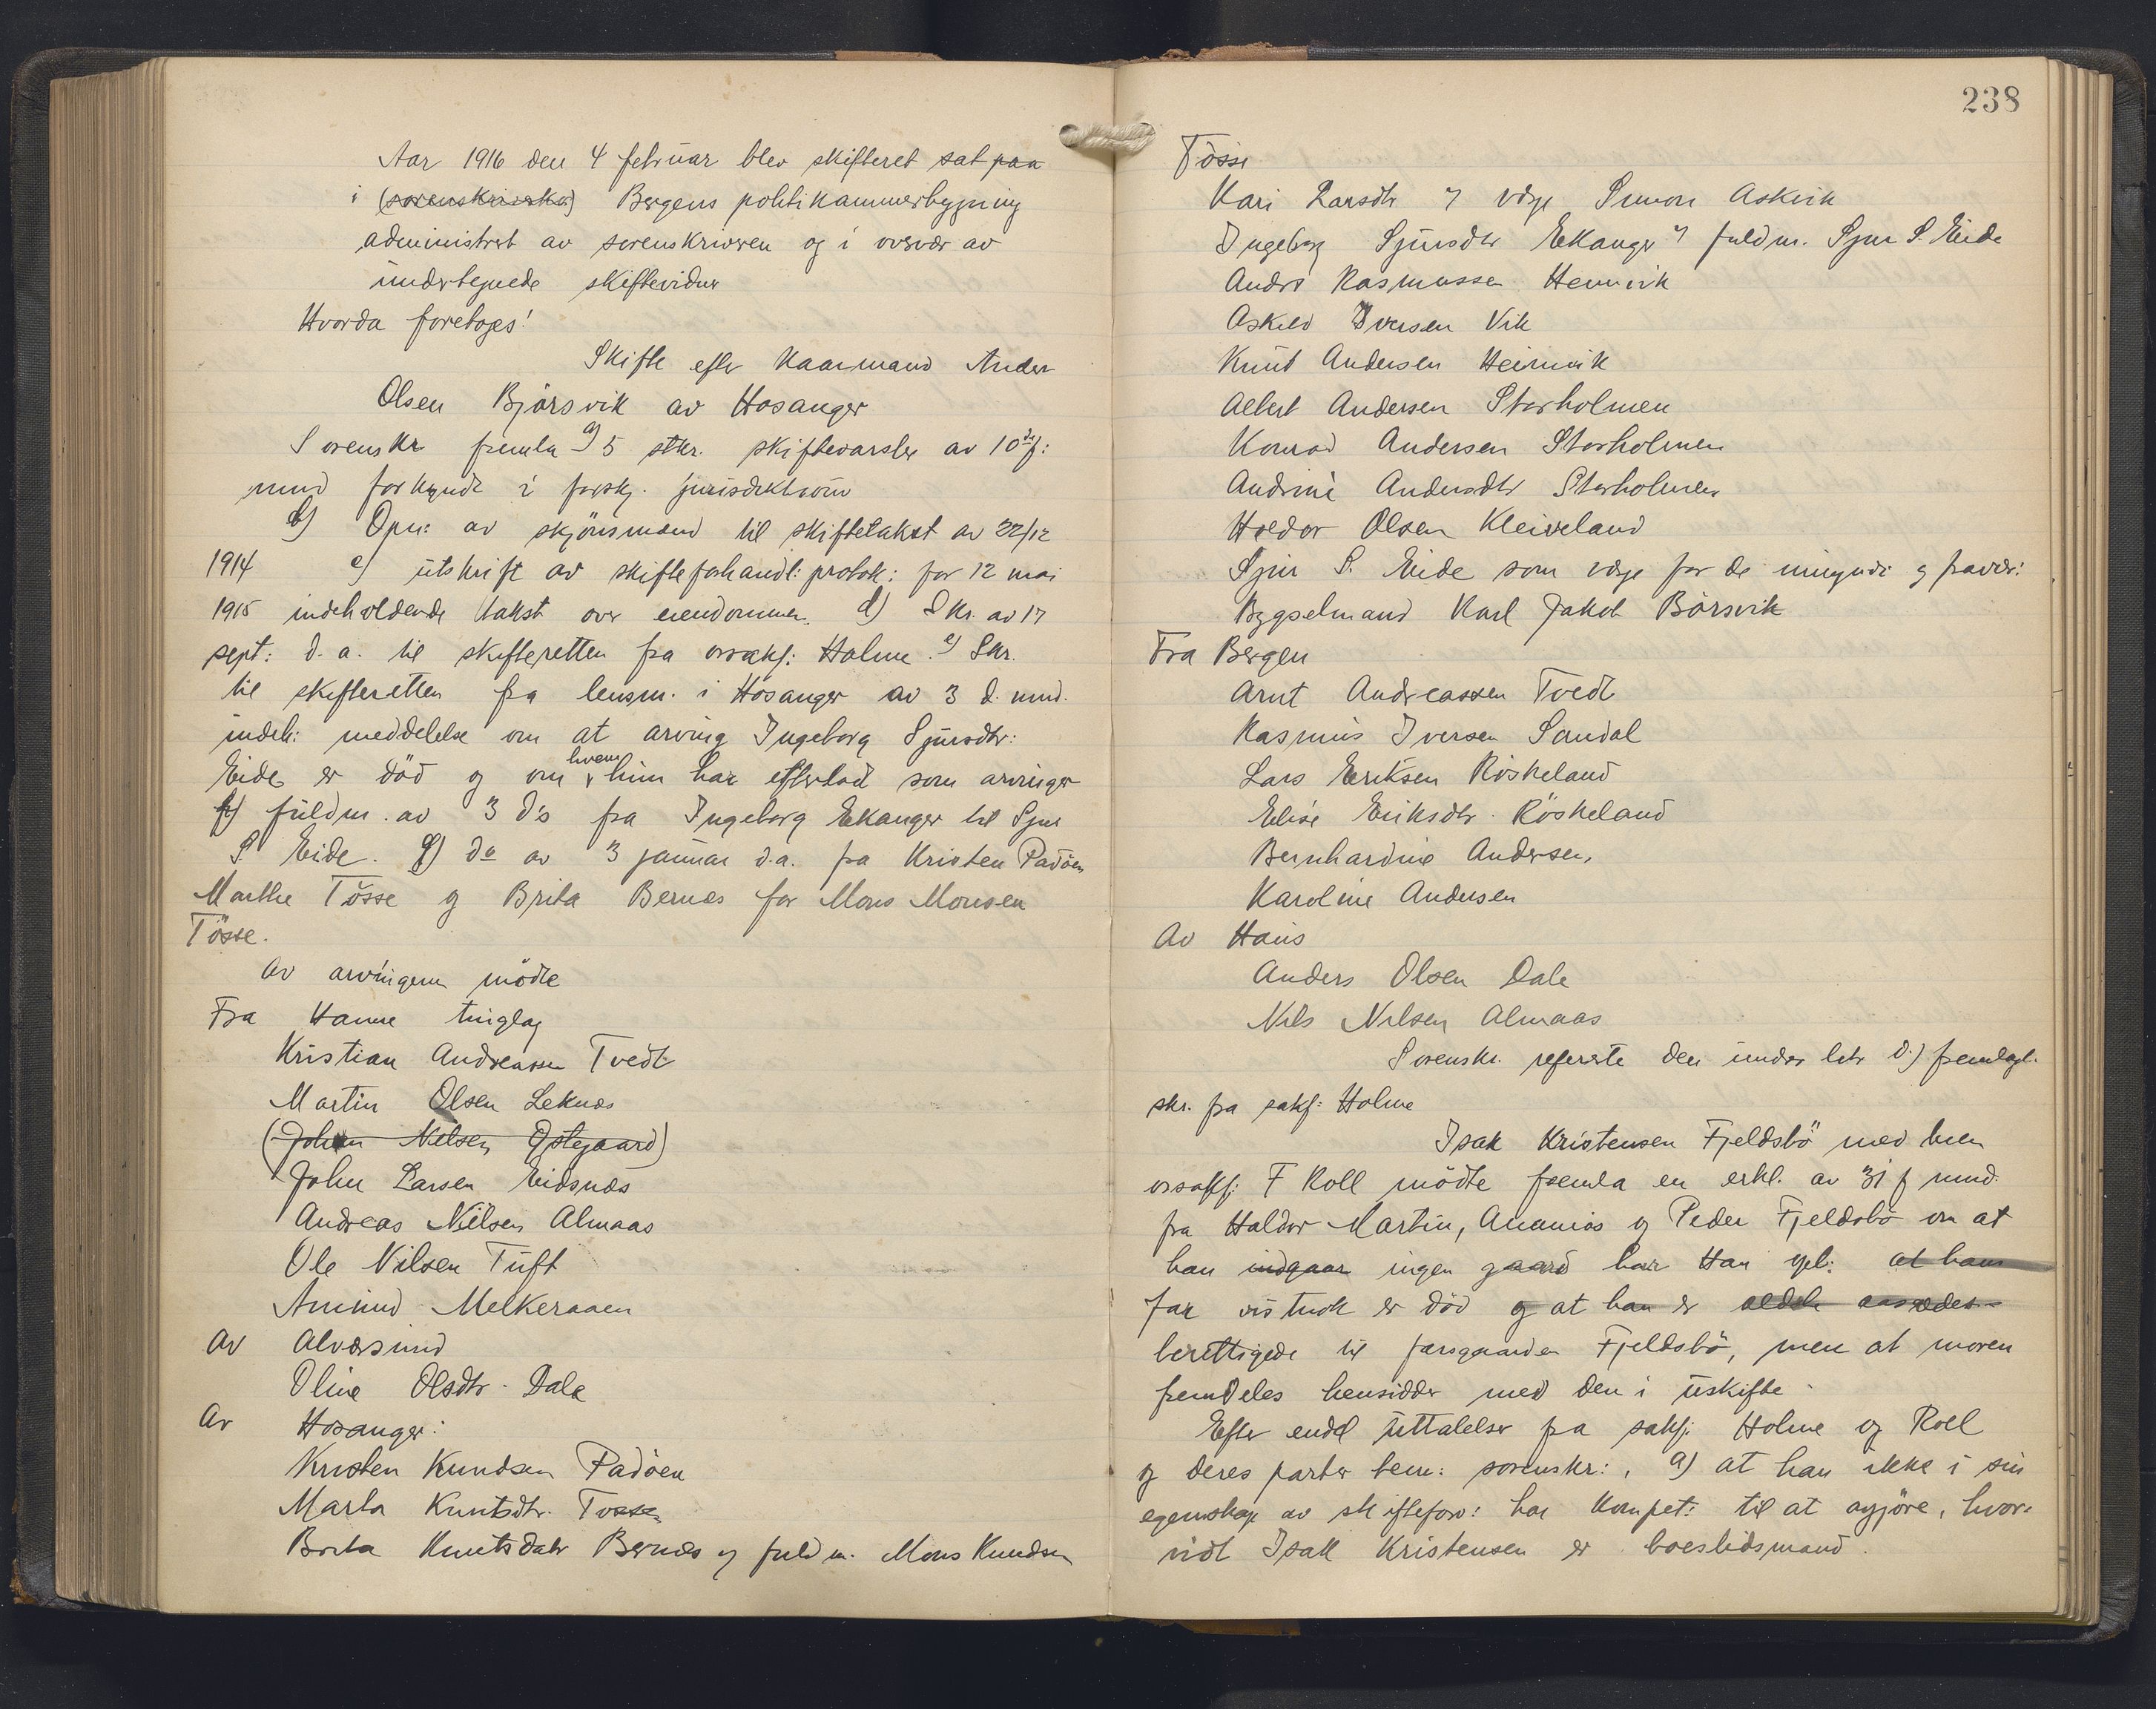 Aar 1916 den 4 februar blev skifteret sat paa
i (sorenskriverko) Bergens politikammerbygning
administret av sorenskriveren og i overvær av
undertegnede skiftevidner
Hvorda foretoges!
Skifte efter Kaarmand Anders
Olsen Bjørsvik av Hosanger
Sorenskr fremla a) 5 stkr. skiftevarsler av 10de f:
mnd forkyndt i forskj. jurisdiktioner
b) Opn: av skjönsmænd til skiftetakst av 22/12
1914 c) utskrift av skifteforhandl: protok: for 12 mai
1915 indeholdende takst over eiendommen. d) Skr. av 17
sept: d. a. til skifteretten fra ovsakf: Holme. e) Skr.
til skifteretten fra lensm. i Hosanger av 3 d. mnd.
indeh: meddelelse om at arving Ingeborg Sjursdtr:
Eide er död og om hvem hun har efterlad som arvinger
f) fuldm. av 3 d's fra Ingeborg Ekanger til Sjur
S. Eide. g) do av 3 januar d.a. fra Kristen Padöen
Marthe Tösse og Brita Bernes for Mons Monsen
Tösse.
Av arvingerne mödte
Fra Hamre tinglag
Kristian Andreassen Tvedt
Martin Olsen Leknes
(Johan Nilsen Östegaard)
John Larsen Eidsnes
Andreas Nilsen Almaas
Ole Nilsen Tuft
Amund Melkeraaen
Av Alversund
Oline Olsdtr. Dale
Av Hosanger:
Kristen Knudsen Padöen
Marta Knutsdtr. Tosse
Brita Knutsdatr Bernes og fuldm. Mons Knudsen
238
Tösse
Kari Larsdtr og verge Simon Askvik
Ingeborg Sjursdtr Ekanger og fuldm. Sjur S. Eide
Andrs Rasmussen Hennvik
Askild Iversen Vik
Knut Andersen Heimvik
Albert Andersen Storholmen
Konrad Andersen Storholmen
Andrine Andersdtr Storholmen
Haldor Olsen Kleiveland
Sjur S. Eide som verge for de umyndi og fraver:
Bygselmand Karl Jakob Börsvik
Fra Bergen
Arnt Andreassen Tvedt
Rasmus Iversen Sandal
Lars Eriksen Röskeland
Elise Eriksdtr. Röskeland
Bernhardine Andersen,
Karoline Andersen
Av Haus
Anders Olsen Dale
Nils Nilsen Almaas
Sorenskr. refererte den under litr d.) fremlagt.
skr. fra sakf: Holme
Isak Kristensen Fjeldsbö med
ovsakf: F Roll mödte fremla en erkl. av 31 f mnd.
fra Haldor Martin, Ananias og Peder Fjeldsbö om at
han indgaar ingen gaard har Han opl: at hans
far vistnok er död og at han er aasædes
berettigede til farsgaarden Fjeldsbö, men at moren
fremdeles hensidder med den i uskifte.
Efter endel uttalelser fra sakf: Holme og Roll
og deres parter bem: sorenskr:, a) at han ikke i sin
egenskap av skifteforv: har kompet: til at avgjöre, hvor-
vidt Isak Kristensen er boeslodsmand.